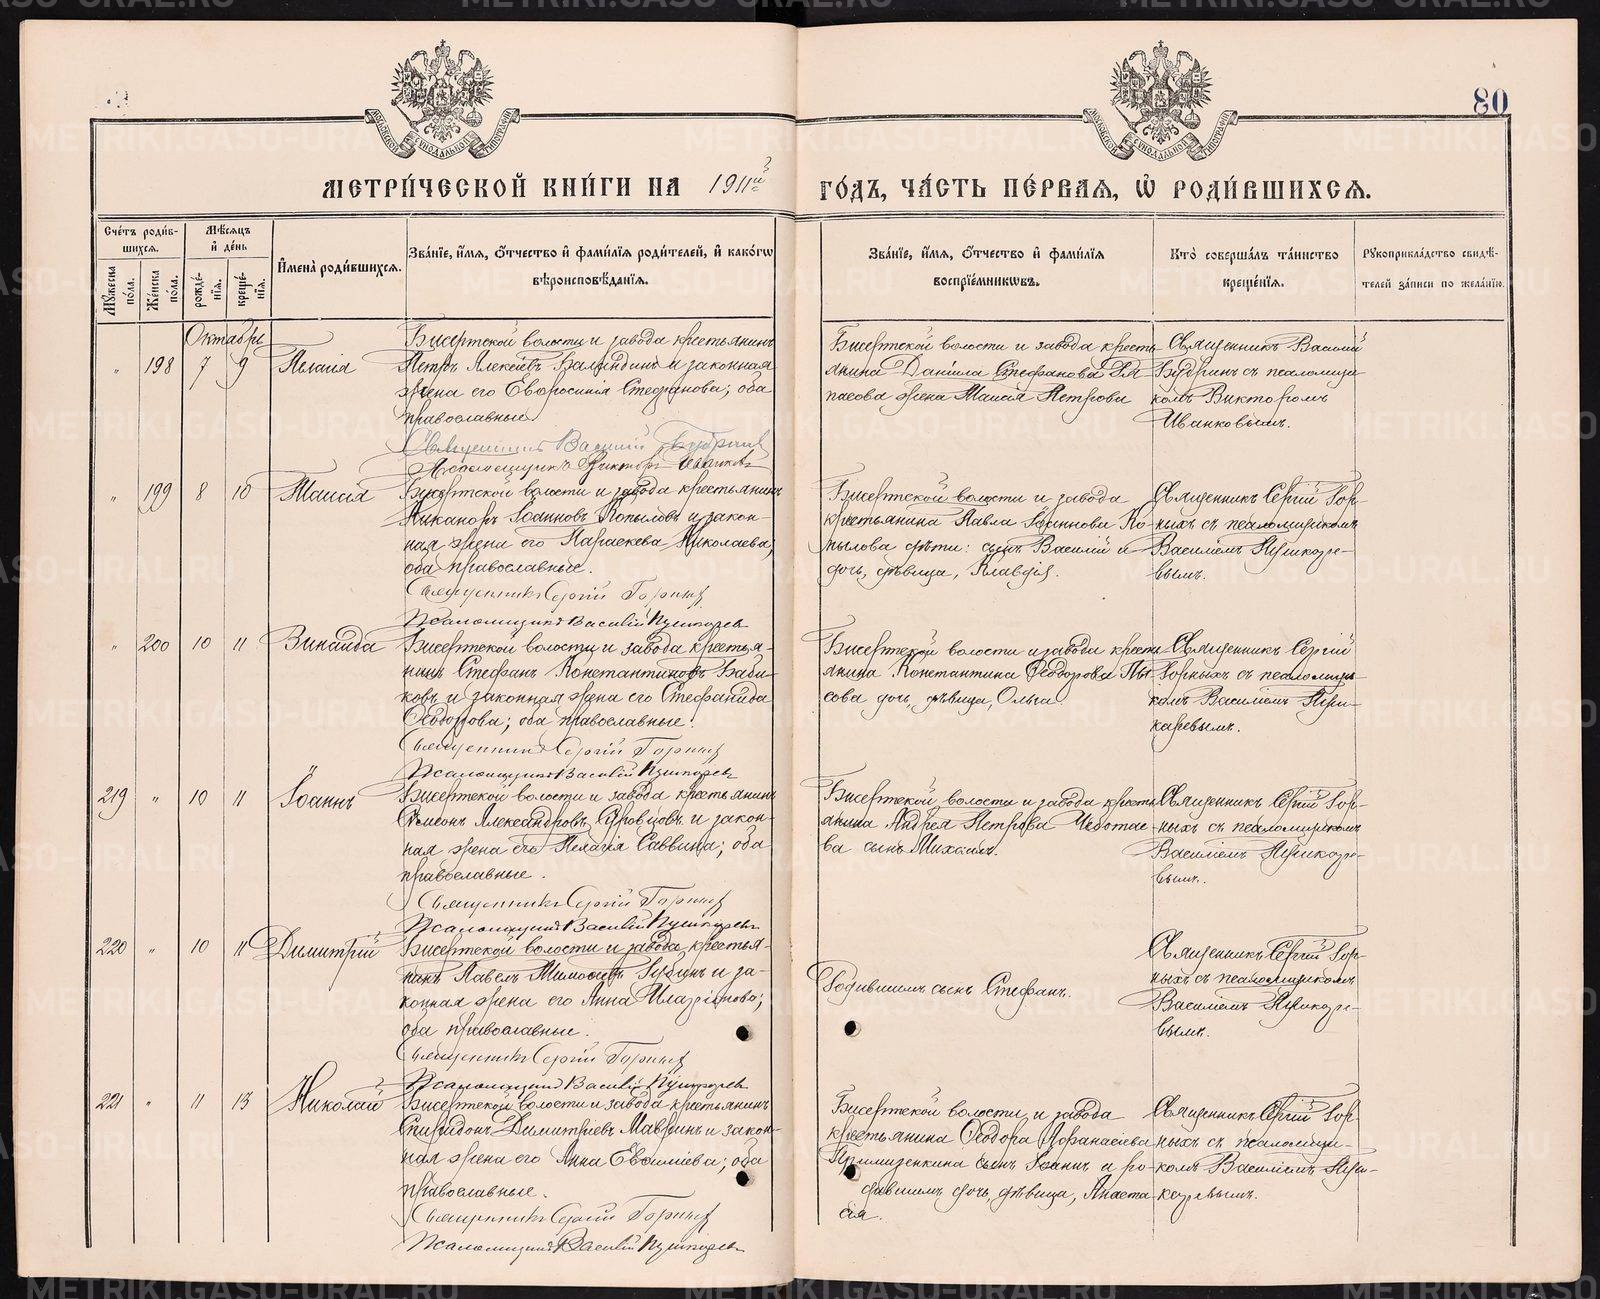 80
МЕТРИЧЕСКОЙ КНИГИ НА 1911й ГОДЪ, ЧАСТЬ ПЕРВАЯ, Ѽ РОДИВШИХСЯ.
Счетъ родившихся.
Мужеска пола.
Женска пола.
Мѣсяцъ и день
рожденїя.
крещенїя.
Имена родившихся.
Званїе, имя, отчество и фамилїя родителей, и какогѡ вѣроисповѣданїя.
Званїе, имя, отчество и фамилїя воспрїемникѡвъ.
Кто совершалъ таинство крещенїя.
Рукоприкладство свидѣтелей записи по желанїю.
Октябрь
„ 198 7 9 Пелагія
Бисертской волости и завода крестьянинъ
Петръ Алексѣевъ и законная
жена его Евфросинія Стефанова; оба
православные.
Священникъ Василій Будринъ
Псаломщикъ Викторъ Иванковъ
Бисертской волости и завода кресть-
янина Даніила Стефанова
жена Таисія Петрова
Священникъ Василій
Будринъ съ псаломщи-
комъ Викторомъ
Иванковымъ.
„ 199 8 10 Таисія
Бисертской волости и завода крестьянинъ
Никаноръ Іоанновъ Копыловъ и закон-
ная жена его Параскева Николаева;
оба православные.
Священникъ Сергій Горныхъ
Псаломщикъ Василій
Бисертской волости и завода
крестьянина Павла Іоаннова Ко-
пылова дѣти: сынъ Василій и
дочь, дѣвица, Клавдія.
Священникъ Сергій Гор-
ныхъ съ псаломщикомъ
Василіемъ
„ 200 10 11 Зинаида
Бисертской волости и завода крестья-
нинъ Стефанъ Константиновъ Баби-
ковъ и законная жена его Стефанида
Ѳеодорова; оба православные.
Священникъ Сергій Горныхъ
Псаломщикъ Василій
Бисертской волости и завода кресть-
янина Константина Ѳеодорова
сова дочь, дѣвица, Ольга
Священникъ Сергій
Горныхъ съ псаломщи-
комъ Василіемъ
219 „ 10 11 Іоаннъ
Бисертской волости и завода крестьянинъ
Симеонъ Александровъ и закон-
ная жена его Пелагія Саввина; оба
православные.
Священникъ Сергій Горныхъ
Псаломщикъ Василій
Бисертской волости и завода кресть-
янина Андрея Петрова Чеботае-
ва сынъ Михаилъ.
Священникъ Сергій Гор-
ныхъ съ псаломщикомъ
Василіемъ
220 „ 10 11 Димитрій
Бисертской волости и завода крестья-
нинъ Павелъ Тимоѳеевъ и за-
конная жена его Анна Иларіонова;
оба православные.
Священникъ Сергій Горныхъ
Псаломщикъ Василій
Родившимъ сынъ Стефанъ.
Священникъ Сергій Гор-
ныхъ съ псаломщикомъ
Василіемъ
221 „ 11 13 Николай
Бисертской волости и завода крестьянинъ
Спиридонъ Димитріевъ Мавринъ и закон-
ная жена его Анна Евсиміева; оба
православные.
Священникъ Сергій Горныхъ
Псаломщикъ Василій
Бисертской волости и завода
крестьянина Ѳеодора Аѳанасіева
сынъ Іоаннъ и ро-
дившимъ дочь, дѣвица, Анаста-
сія.
Священникъ Сергій Гор-
ныхъ съ псаломщи-
комъ Василіемъ
METRIKI.GASO-URAL.RU